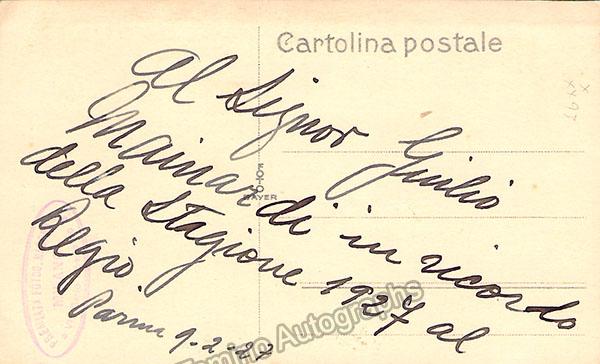 Cartolina postale
Al Signor Giulio
Mainardi in ricordo
della Stagione 1927 al
Regio.
Parma 9-2-27
FOTO
MAYER
Tamino Autographs